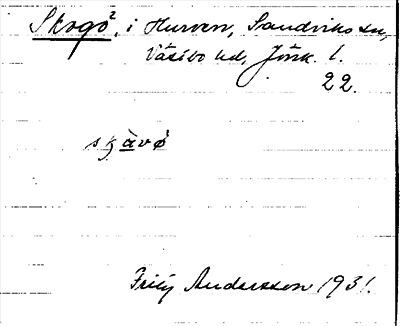 Skogö², i Hurven, Sandviks sn,
Västbo hd, Jönk. l.
22.
skàvö
Fritz Andersson 1931.